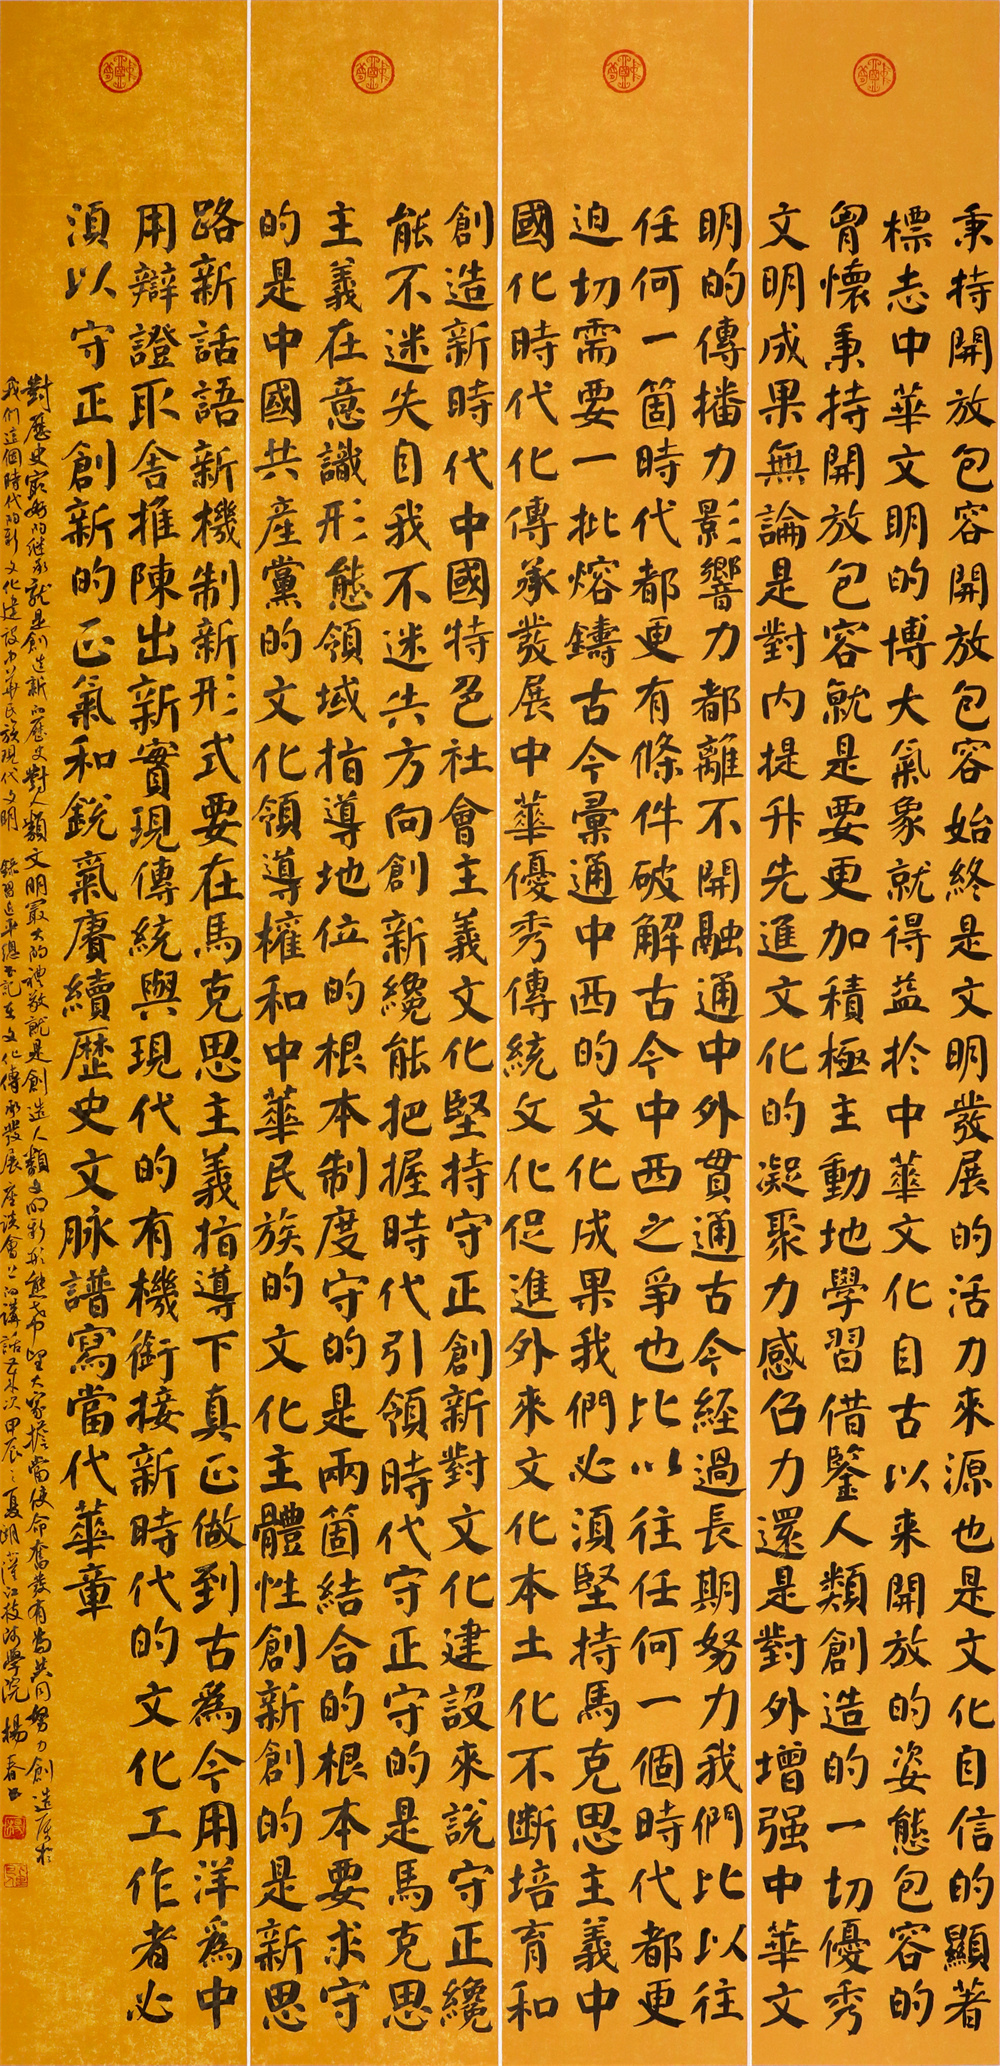 秉持開放包容開放包容始終是文明發展的活力來源也是文化自信的顯著
標志中華文明的博大氣象就得益於中華文化自古以来開放的姿態包容的
胷懷秉持開放包容就是要更加積極主動地學習借鑒人類創造的一切優秀
文明成果無論是對内提升先進文化的凝聚力感召力還是對外增强中華文
明的傳播力影響力都離不開融通中外貫通古今経過長期努力我們比以往
任何一箇時代都更有條件破解古今中西之爭也比以往任何一個時代都更
迫切需要一批熔鑄古今彙通中西的文化成果我們必須堅持馬克思主義中
國化時代化傳承發展中華優秀傳統文化促進外來文化本土化不断培育和
創造新時代中國特色社會主義文化堅持守正創新對文化建設來說守正纔
能不迷失自我不迷失方向創新纔能把握時代引領時代守正守的是馬克思
主義在意識形態領域指導地位的根本制度守的是兩箇結合的根本要求守
的是中國共産黨的文化領導權和中華民族的文化主體性創新創的是新思
路新話語新機制新形式要在馬克思主義指導下真正做到古為今用洋為中
用辯證取舍推陳出新實現傳統與現代的有機銜接新時代的文化工作者必
須以守正創新的正氣和銳氣賡續歷史文脉譜寫當代華章
對歷史最好的继承就是創造新的歷史對人類文明最大的禮敬就是創造人類文明新形態希望大家擔當使命奮發有為共同努力創造屬於
我们這個時代的新文化建設中華民族現代文明 録習近平總书記在文化傳承發展座談會上的講話 甲辰之夏 學院楊春书